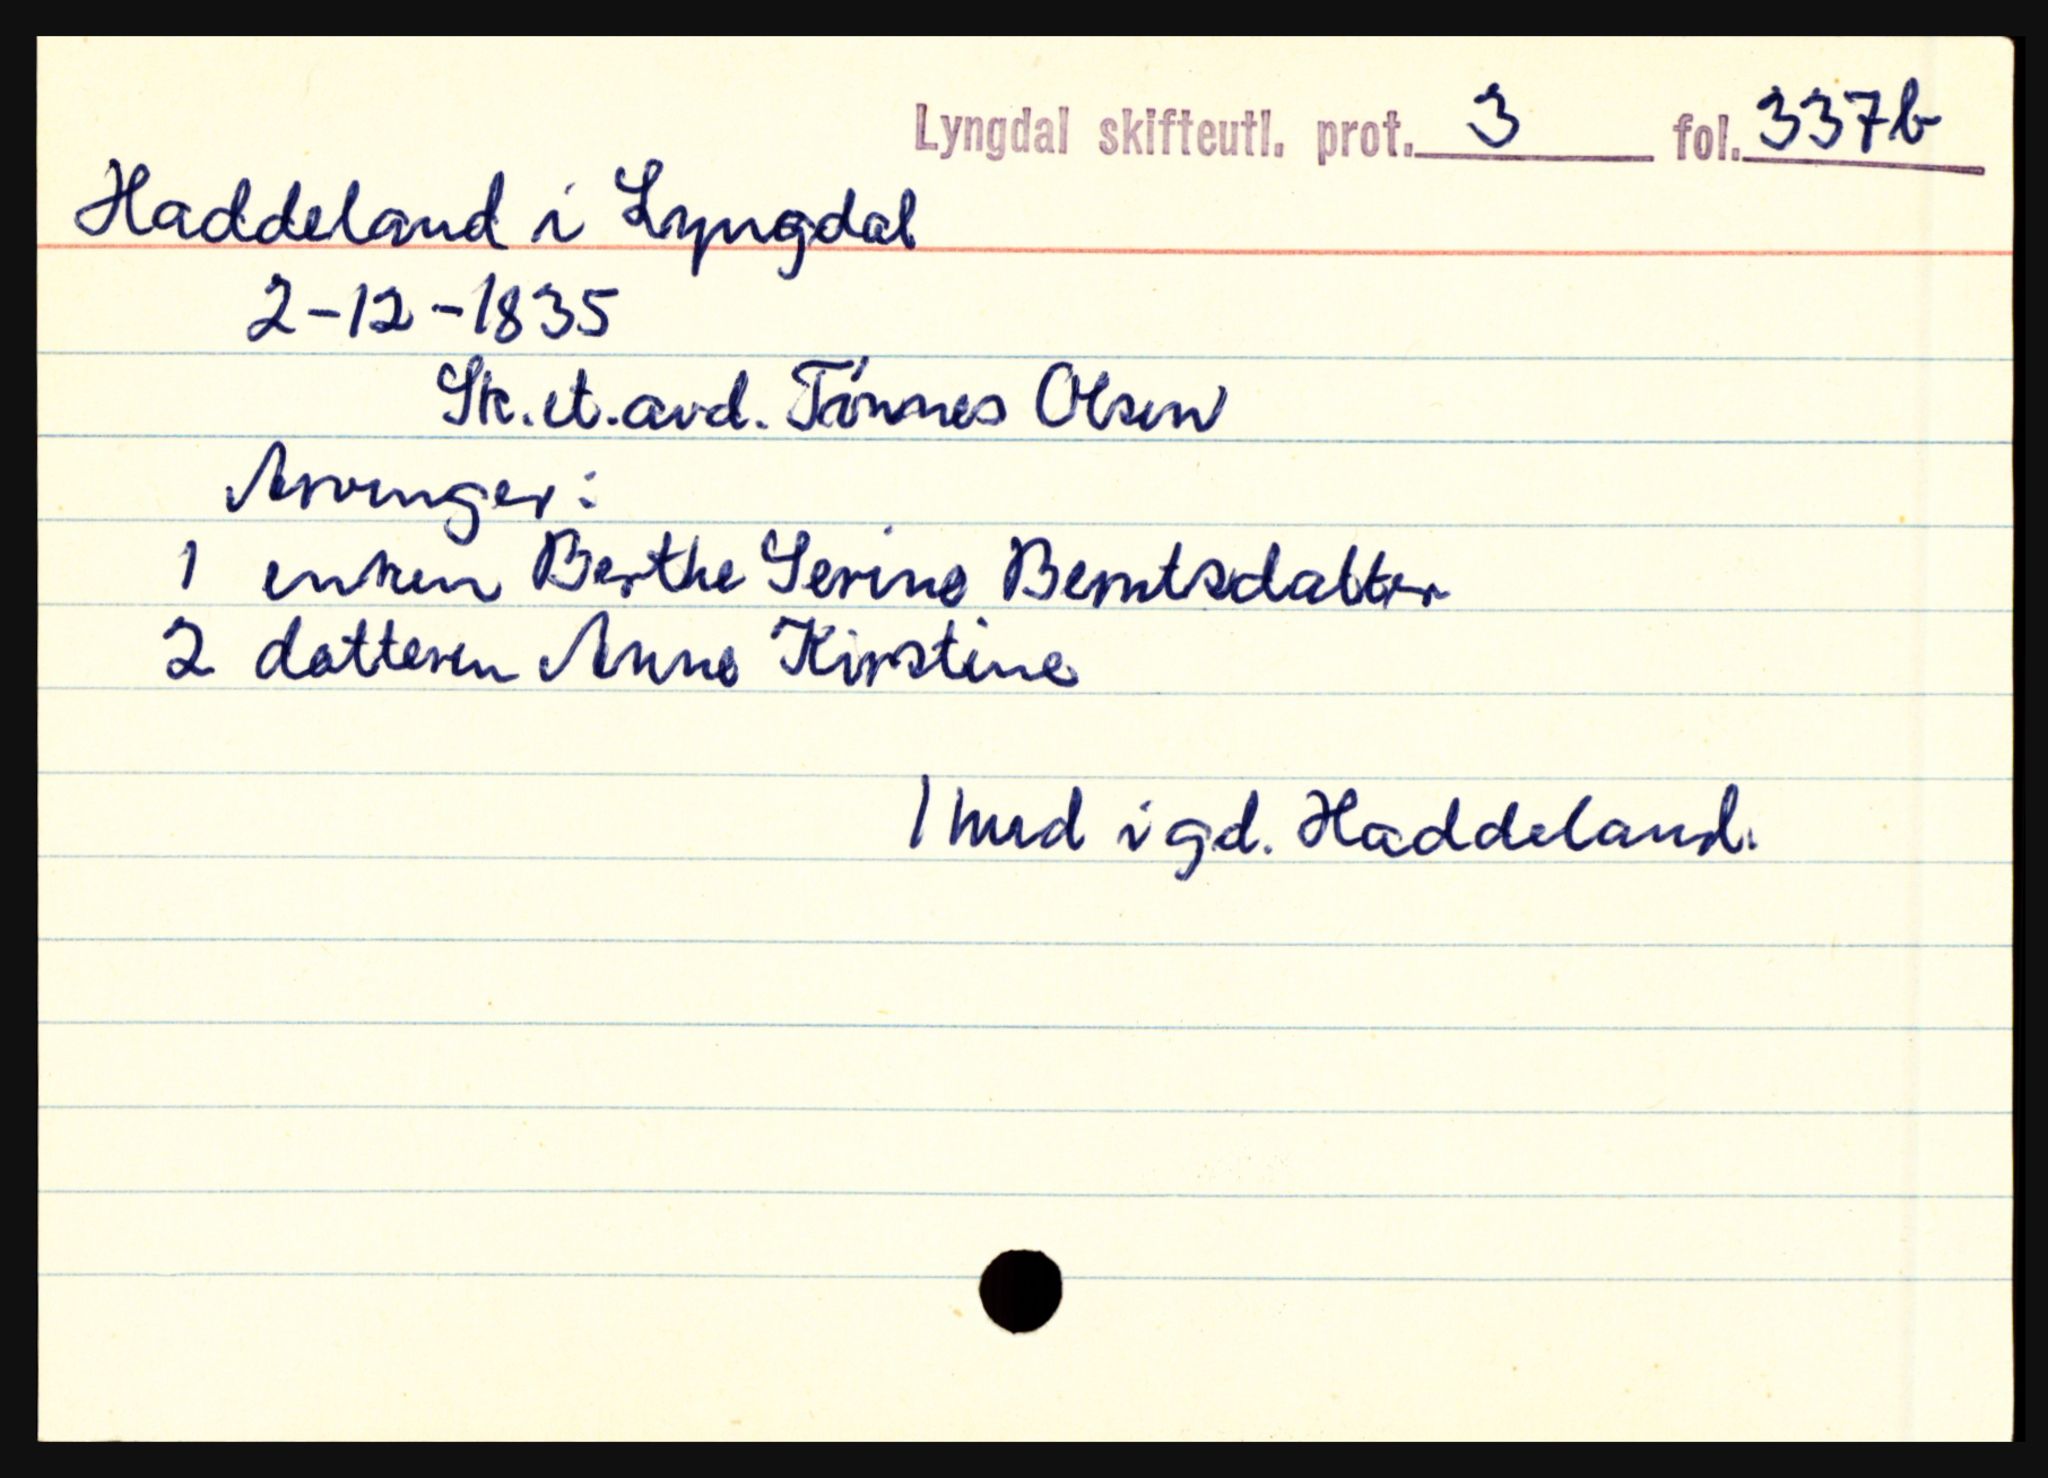 Lyngdal skifteutl. prot. 3 fol. 337b
Haddeland i Lyngdal
2-12-1835
Sk. et. avd. Tónnes Olsen
Arvinger:
1 enken Berthe Serine Berntsdatter
2 datteren Anne Kirstine
1 hud i gd. Haddeland.